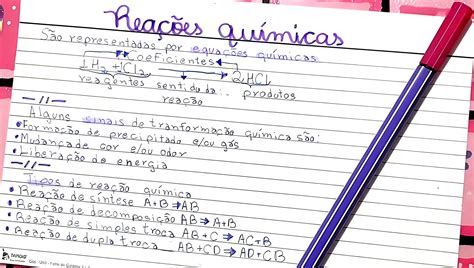 Reações químicas
São representadas por equações químicas:
Coeficientes
1H2 + 1Cl2 → 2HCl
reagentes sentido da: produtos
reação
— // —
Alguns sinais de tranformação química são:
•Formação de precipitado e/ou gás
•Mudança de cor e/ou odor
•Liberação de energia
— // —
Tipos de reação química
•Reação de síntese A+B⇒AB
•Reação de decomposição AB⇒A+B
•Reação de simples troca AB+C⇒AC+B
•Reação de dupla troca AB+CD⇒AD+CB